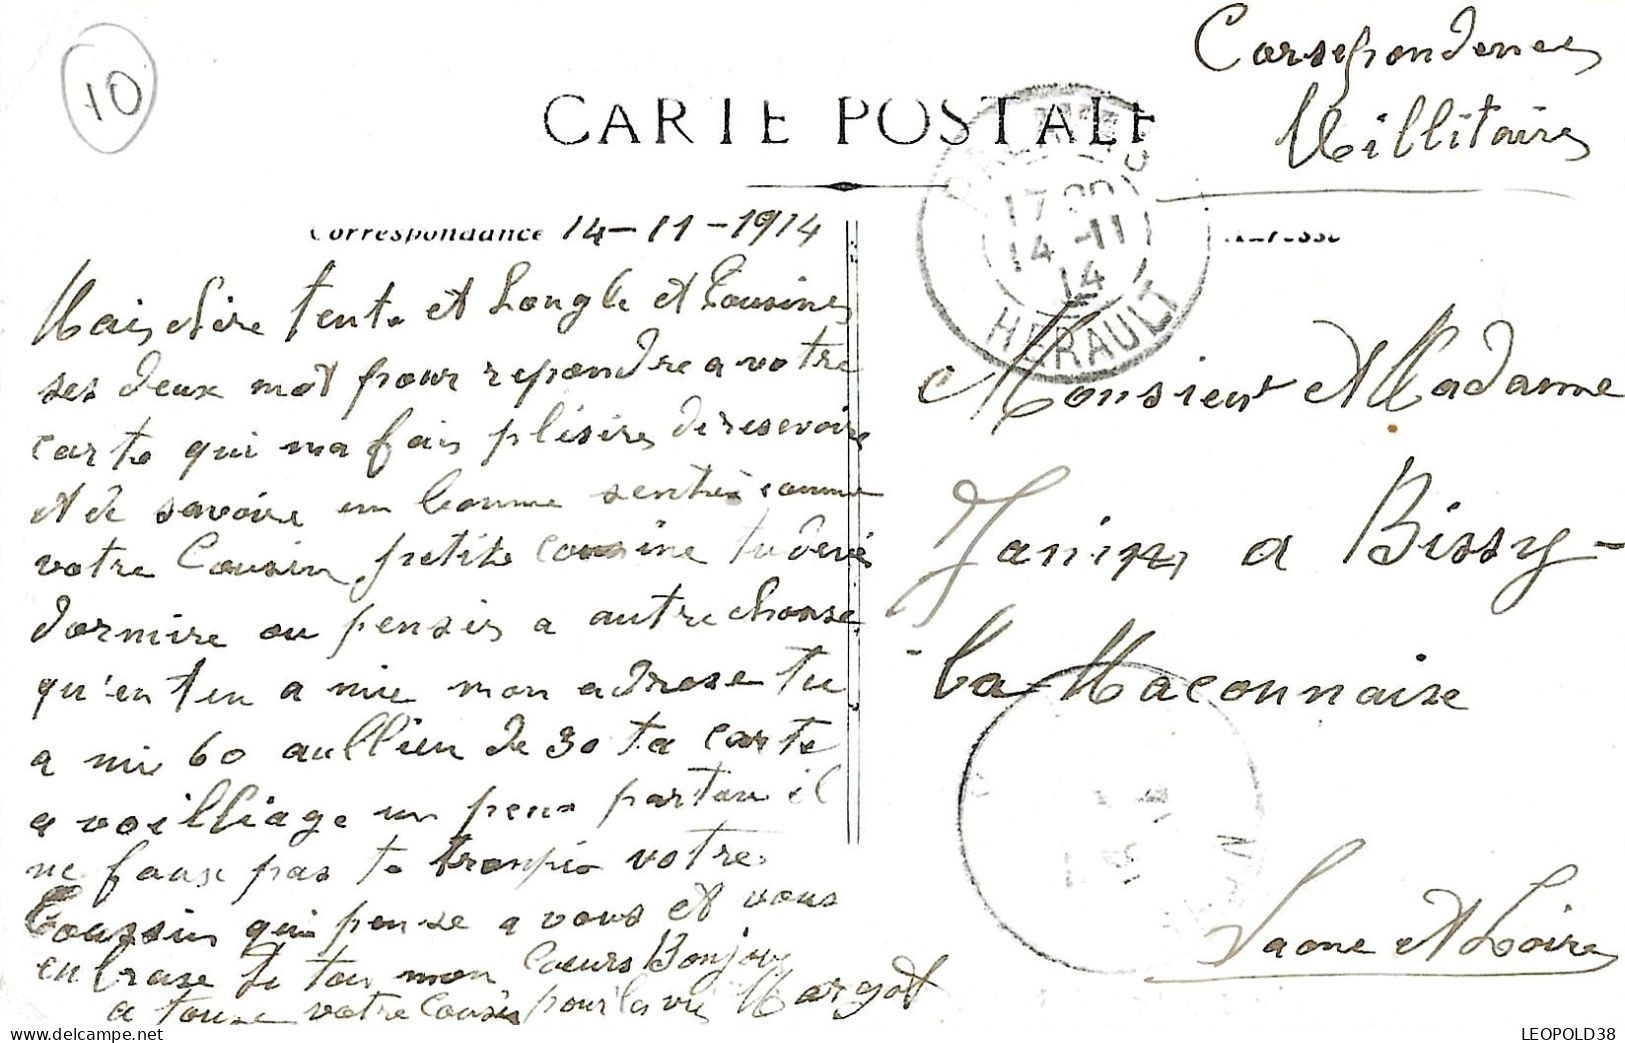 10
Corsepondences
Millitaires
CARTE POSTALE
Correspondance 14-11-1914
17
14-11
14
HERAULT
Mais chère tente et Longle et Cousines
ses deux mot pour repondre a votre
carte qui ma fais plésires de resevoire
et de savoire en bonne sentrés comme
votre Cousin, petite cousine tu devés
dormire ou pensés a autre chouse
qu'en ten a mie mon adrese tu
a mie 60 aullieu de 30 ta carte
a voilliage un peux partou il
ne faux pas te trompés votre
Coussin qui pense a vous et vous
enbrase de tou mon Coeurs Bonjour
a touse votre Cousin pour la vie Margot
Monsieur et Madame
Janin, a Bissy-
-la-Maconnaise
Saone et Loire
LEOPOLD38